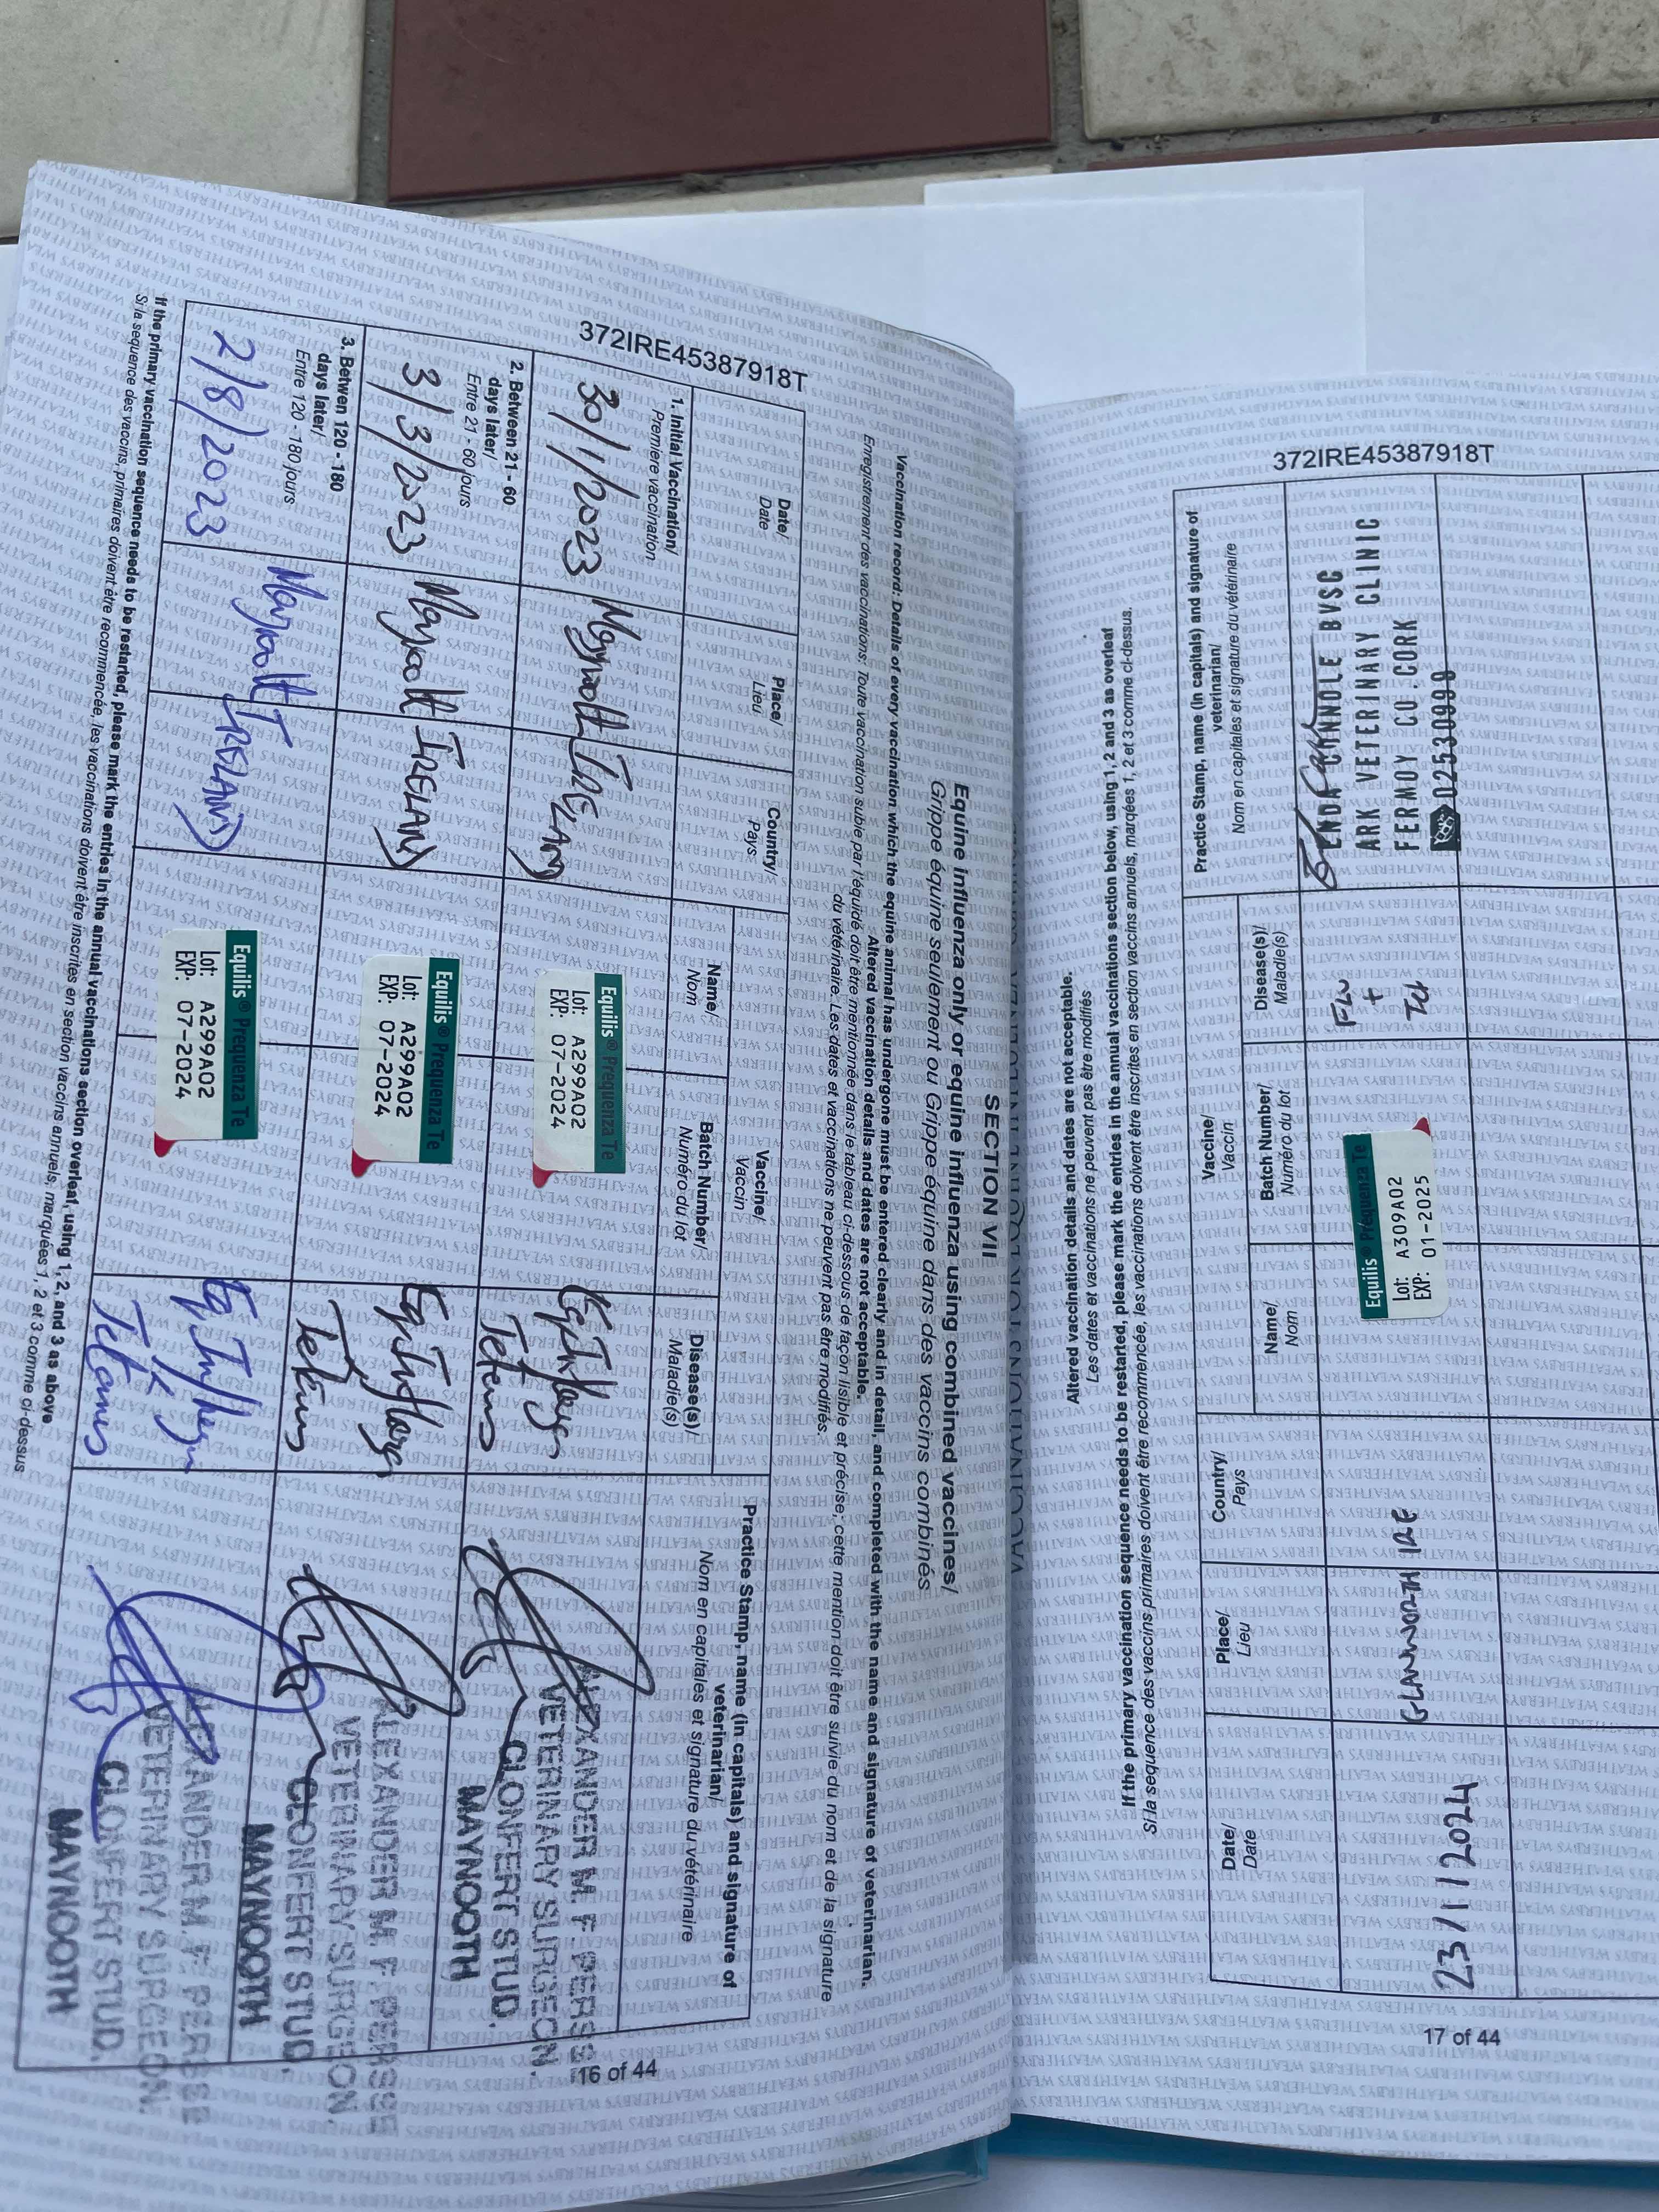 372IRE45387918T
SECTION VII
Equine influenza only or equine influenza using combined vaccines/
Grippe équine seulement ou Grippe équine dans des vaccins combinés
Vaccination record: Details of every vaccination which the equine animal has undergone must be entered clearly and in detail, and completed with the name and signature of veterinarian.
Altered vaccination details and dates are not acceptable.
Enregistrement des vaccinations: Toute vaccination subie par l'équidé doit être mentionnée dans le tableau ci-dessous de façon lisible et précise; cette mention doit être suivie du nom et de la signature
du vétérinaire. Les dates et vaccinations ne peuvent pas être modifiés.
Date/
Date
Place/
Lieu
Country/
Pays
Vaccine/
Vaccin
Name/
Nom
Batch Number/
Numéro du lot
Disease(s)/
Maladie(s)
Practice Stamp, name (in capitals) and signature of
veterinarian/
Nom en capitales et signature du vétérinaire
1. Initial Vaccination/
Première vaccination
30/1/2023
Maynooth
IRELAND
Equilis® Prequenza Te
Lot: A299A02
EXP: 07-2024
Tetanus
ALEXANDER M. F. PERSSE
VETERINARY SURGEON.
CLONFERT STUD.
MAYNOOTH
2. Between 21 - 60
days later/
Entre 21 - 60 jours
3/3/2023
Maynooth
IRELAND
Equilis® Prequenza Te
Lot: A299A02
EXP: 07-2024
Tetanus
ALEXANDER M. F. PERSSE
VETERINARY SURGEON.
CLONFERT STUD.
MAYNOOTH
3. Betwen 120 - 180
days later/
Entre 120 - 180 jours
2/8/2023
Maynooth
IRELAND
Equilis® Prequenza Te
Lot: A299A02
EXP: 07-2024
Tetanus
ALEXANDER M. F. PERSSE
VETERINARY SURGEON.
CLONFERT STUD.
MAYNOOTH
If the primary vaccination sequence needs to be restarted, please mark the entries in the annual vaccinations section overleaf, using 1, 2, and 3 as above
Si la sequence des vaccins primaires doivent être recommencée, les vaccinations doivent être inscrites en section vaccins annuels, marquées 1, 2 et 3 comme ci-dessus
16 of 44
372IRE45387918T
Altered vaccination details and dates are not acceptable.
Les dates et vaccinations ne peuvent pas être modifiés
If the primary vaccination sequence needs to be restarted, please mark the entries in the annual vaccinations section below, using 1, 2 and 3 as overleaf
Si la sequence des vaccins primaires doivent être recommencée, les vaccinations doivent être inscrites en section vaccins annuels, marquées 1, 2 et 3 comme ci-dessus.
Date/
Date
Place/
Lieu
Country/
Pays
Vaccine/
Vaccin
Name/
Nom
Batch Number/
Numéro du lot
Disease(s)/
Maladie(s)
Practice Stamp, name (in capitals) and signature of
veterinarian/
Nom en capitales et signature du vétérinaire
23/1/2024
GLANWORTH
IRE
Equilis® Prequenza Te
Lot: A309A02
EXP: 01-2025
FLU
+
Tet
ENDA CANNOLE BVSC
ARK VETERINARY CLINIC
FERMOY CO. CORK
02530999
17 of 44